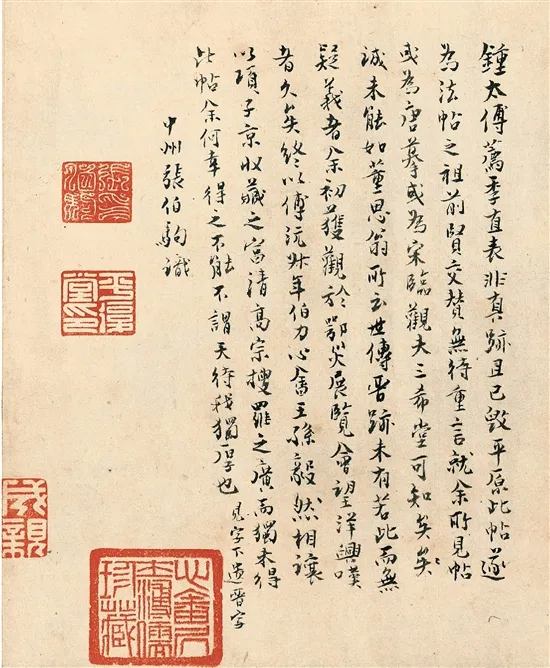 鍾太傅薦季直表非真跡且已毀平原此帖遂
為法帖之祖前賢交贊無待重言就余所見帖
或為唐摹或為宋臨觀夫三希堂可知矣矣
誠未能如董思翁所云世傳晉跡未有若此而無
疑義者余初獲觀於鄂災展覽會望洋興嘆
者久矣終以傅沅叔年伯力心畬王孫毅然相讓
以項子京收藏之富清高宗搜羅之廣而獨未得
此帖余何幸得之不能不謂天待我獨厚也 見字下遺晉字
中州張伯駒識
平復堂印
成親